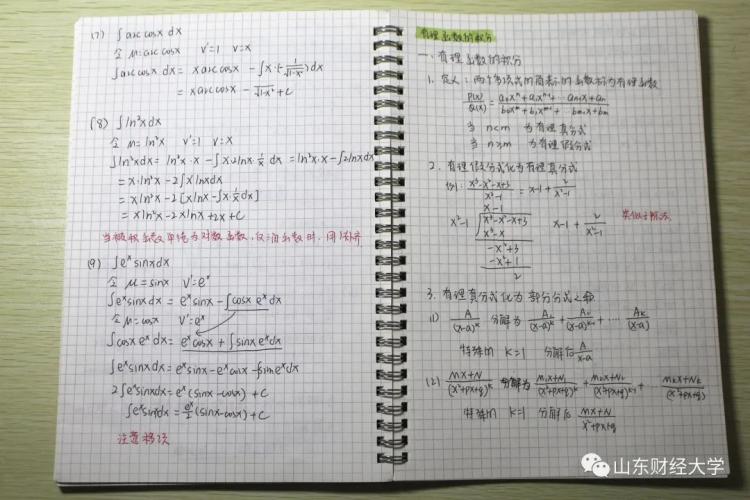 (7) ∫arccosx dx
令 u=arccosx v'=1 v=x
∫arccosx dx = xarccosx - ∫x·(-1/√(1-x²))dx
= xarccosx - √(1-x²) + C
(8) ∫ln²x dx
令 u=ln²x v'=1 v=x
∫ln²xdx = ln²x·x - ∫x·2lnx·1/x dx = ln²x·x - ∫2lnxdx
= x·ln²x - 2∫lnxdx
= xln²x - 2[xlnx - ∫x·1/x dx]
= xln²x - 2xlnx + 2x + C
当被积函数单纯为对数函数,反三角函数时,用
(9) ∫eˣsinxdx
令 u=sinx v'=eˣ
∫eˣsinxdx = eˣsinx - ∫cosx eˣdx
令 u=cosx v'=eˣ
∫cosx eˣdx = eˣcosx + ∫sinx eˣdx
∫eˣsinxdx = eˣsinx - eˣcosx - ∫sinxeˣdx
2∫eˣsinxdx = eˣ(sinx-cosx) + C
∫eˣsinxdx = eˣ/2 (sinx-cosx) + C
注意移项
有理函数的积分
一、有理函数的积分
1. 定义:两个多项式的商表示的函数称为有理函数
P(x)/Q(x) = (a₀xⁿ+a₁xⁿ⁻¹+… aₙ₋₁x+aₙ)/(b₀xᵐ+b₁xᵐ⁻¹+… bₘ₋₁x+bₘ)
当 n<m 为有理真分式
当 n≥m 为有理假分式
2. 有理假分式化为有理真分式
例: (x³-x²-x+3)/(x²-1) = x-1+2/(x²-1)
x-1
x²-1 √x³-x²-x+3 x-1+2/(x²-1) 类似于除法
x³-x
-x²+3
-x²+1
2
3. 有理真分式化为部分分式之和
(1) A/(x-a)ᵏ 分解为 A₁/(x-a)ᵏ + A₂/(x-a)ᵏ⁻¹ + … Aₖ/(x-a)
特殊的 k=1 分解后 A/(x-a)
(2) (Mx+N)/(x²+px+q)ᵏ 分解为 (M₁x+N₁)/(x²+px+q)ᵏ + (M₂x+N₂)/(x²+px+q)ᵏ⁻¹ + … (Mₖx+Nₖ)/(x²+px+q)
特殊的 k=1 分解后 (Mx+N)/(x²+px+q)
山东财经大学